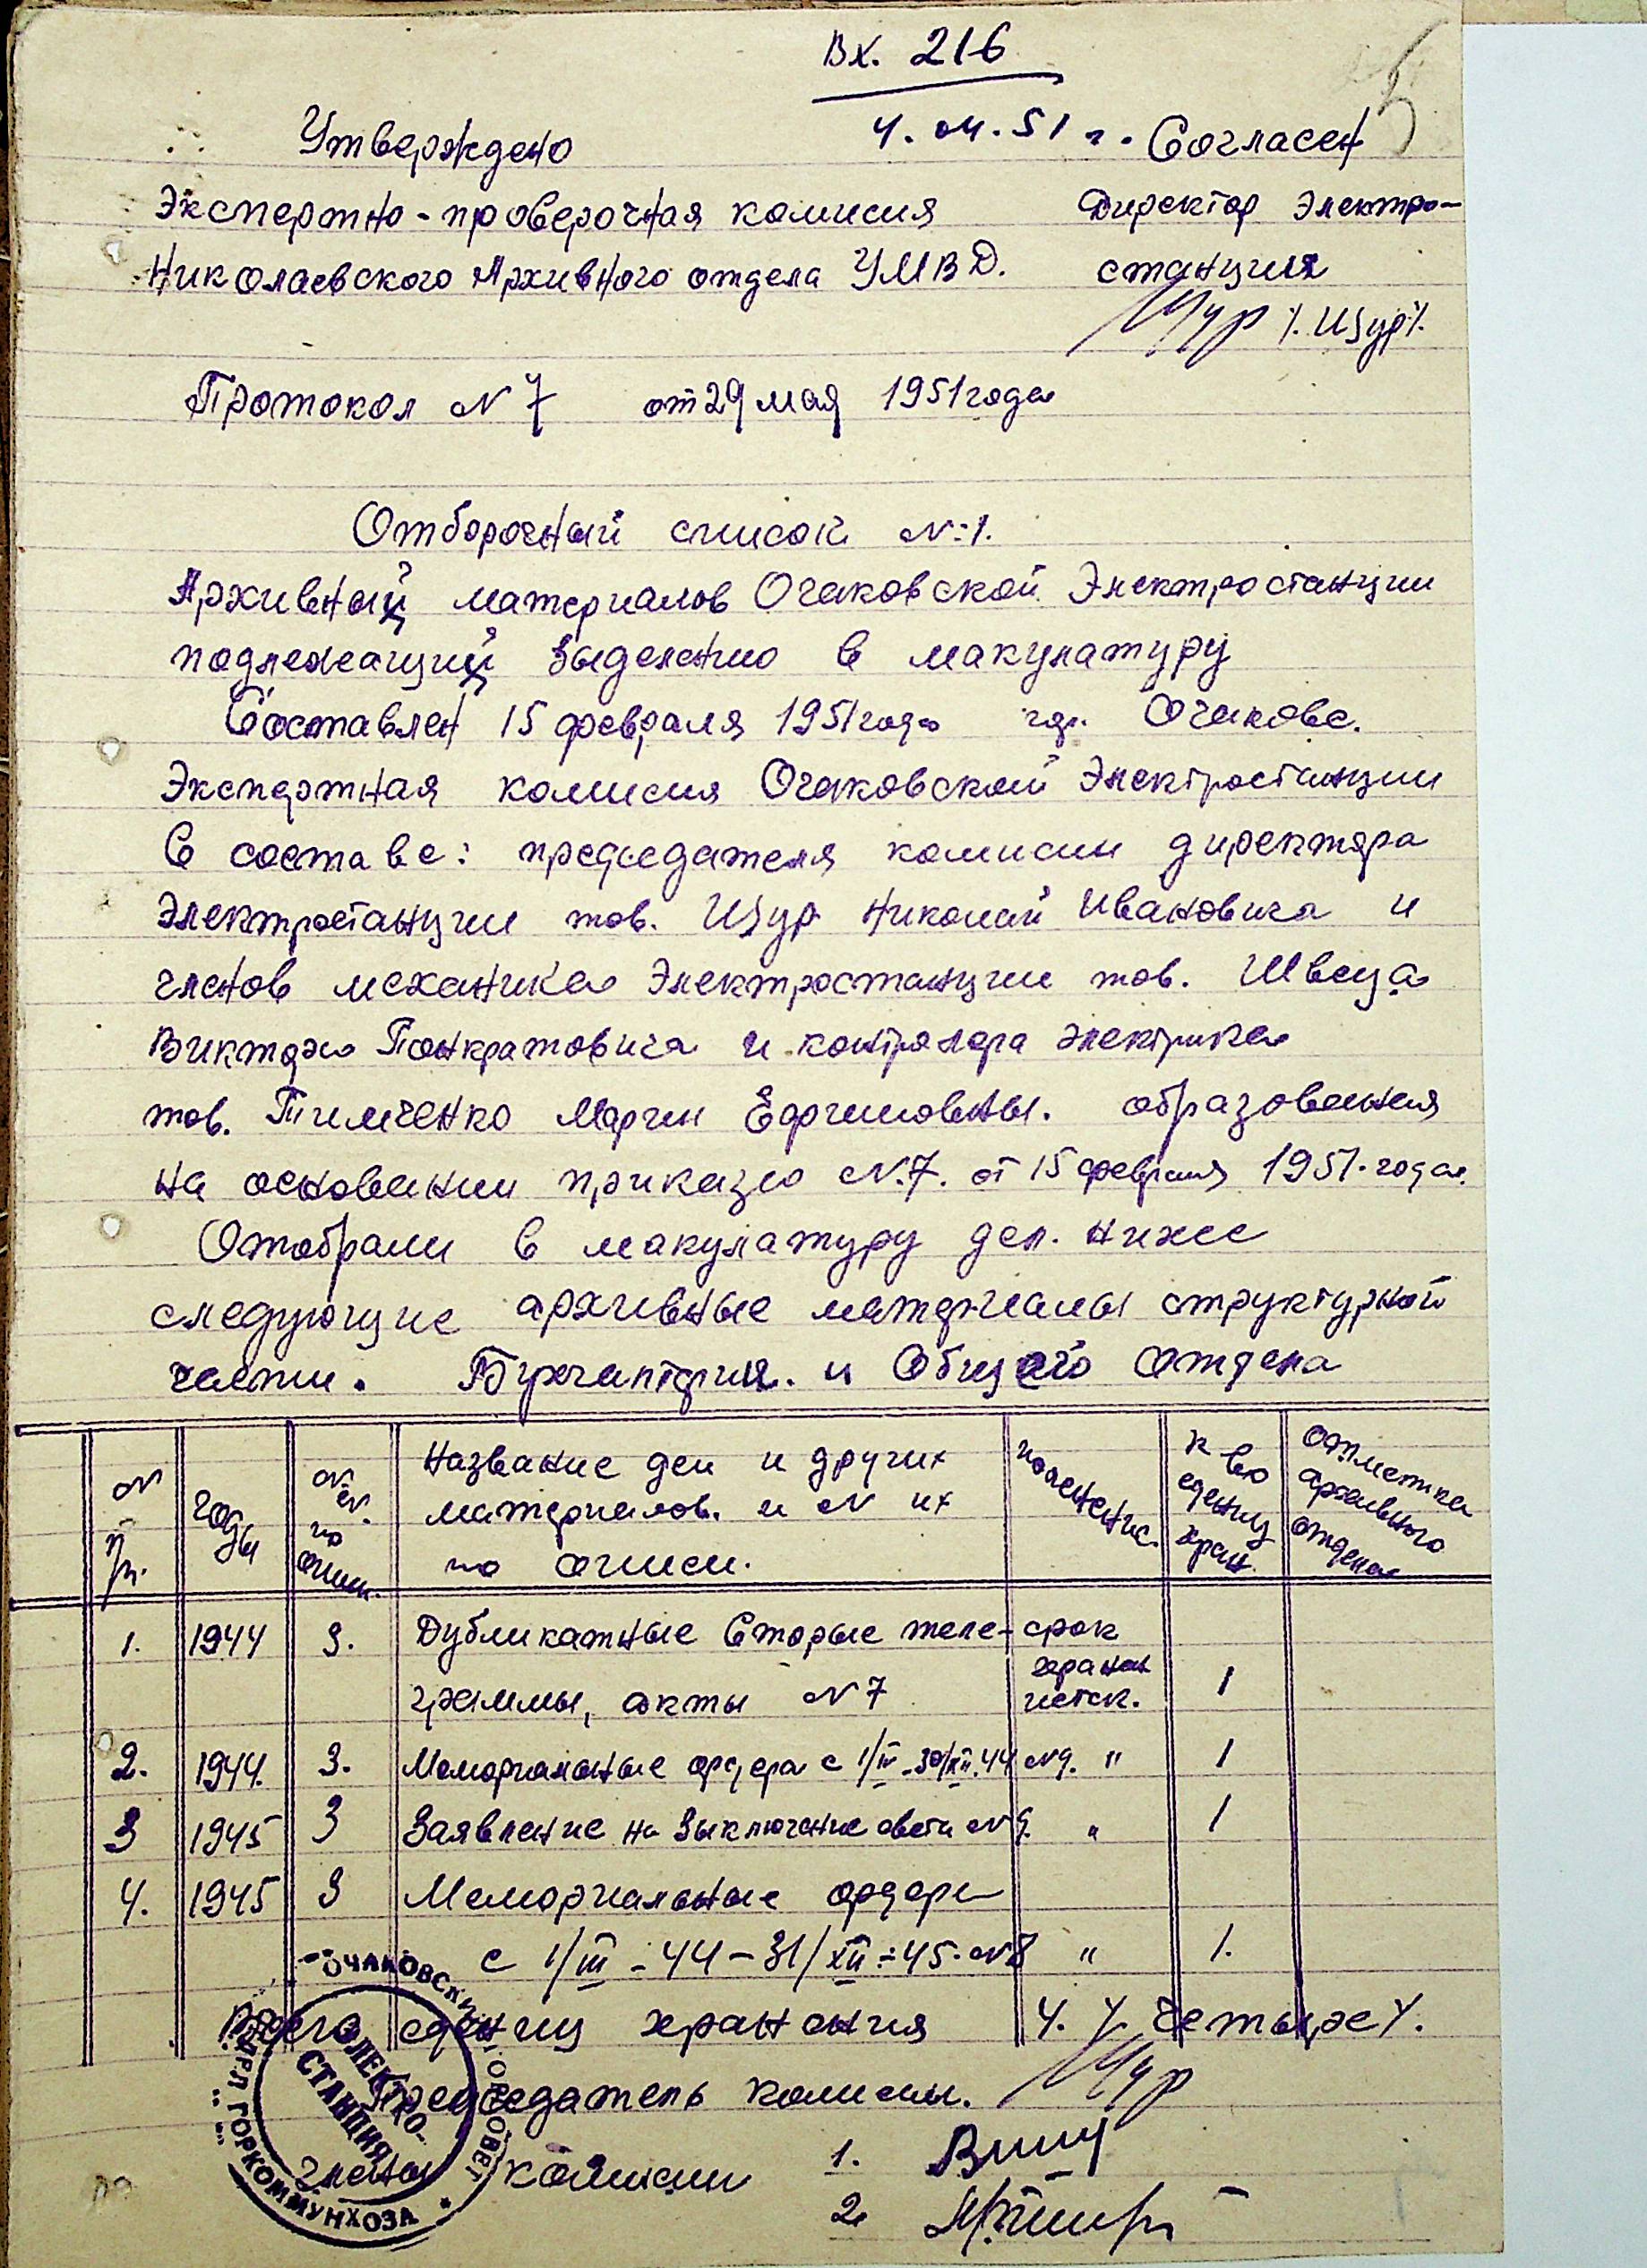 Вх. 216
4. 04. 51 г.
Утверждено
Экспертно-проверочная комисия
Николаевского Архивного отдела УМВД.
Согласен
Директор Электро-
станция
/. Щур /.
Протокол N 7 от 29 мая 1951 года
Отборочный список N: 1.
Архивный материалов Очаковской Электростанции
подлежащий выделению в макулатуру
Составлен 15 февраля 1951 года гор. Очакове.
Экспертная комисия Очаковской Электростанции
В составе: председателя комисии директора
Электростанции тов. Щур Николай Ивановича и
членов механика Электростанции тов. Швеца
Виктора Понкратовича и контролера электрика
тов. Тимченко Марии Ефимовны. образования
на основании приказа N. 7. от 15 февраля 1951. года.
Отобрали в макулатуру дел. ниже
следующие архивные материалы структурной
части. Бухгалтерия. и Общего отдела
N п/п.
годы
N N. по описи.
Название дел и других
материалов. и N их
по описи.
пояснение.
к во единиц хран.
отметка архивного отдела
1. 1944 3. Дубликатные Вторые теле- срок
хранен
граммы, акты N 7 истек. 1
2. 1944. 3. Мемориальные ордера с 1/III-30/XII.44 N 9. " 1
3 1945 3 Заявление на выключение света N 9. " 1
4. 1945 3 Мемориальные ордера
с 1/III-44-31/XII-45. N 8 " 1.
Всего единиц хранения 4. /. четыре /.
Председатель комисии.
Члены комисии 1.
2.
ОЧАКОВСКИЙ ГОРСОВЕТ
ЭЛЕКТРО-
СТАНЦИЯ
ГОРКОММУНХОЗА